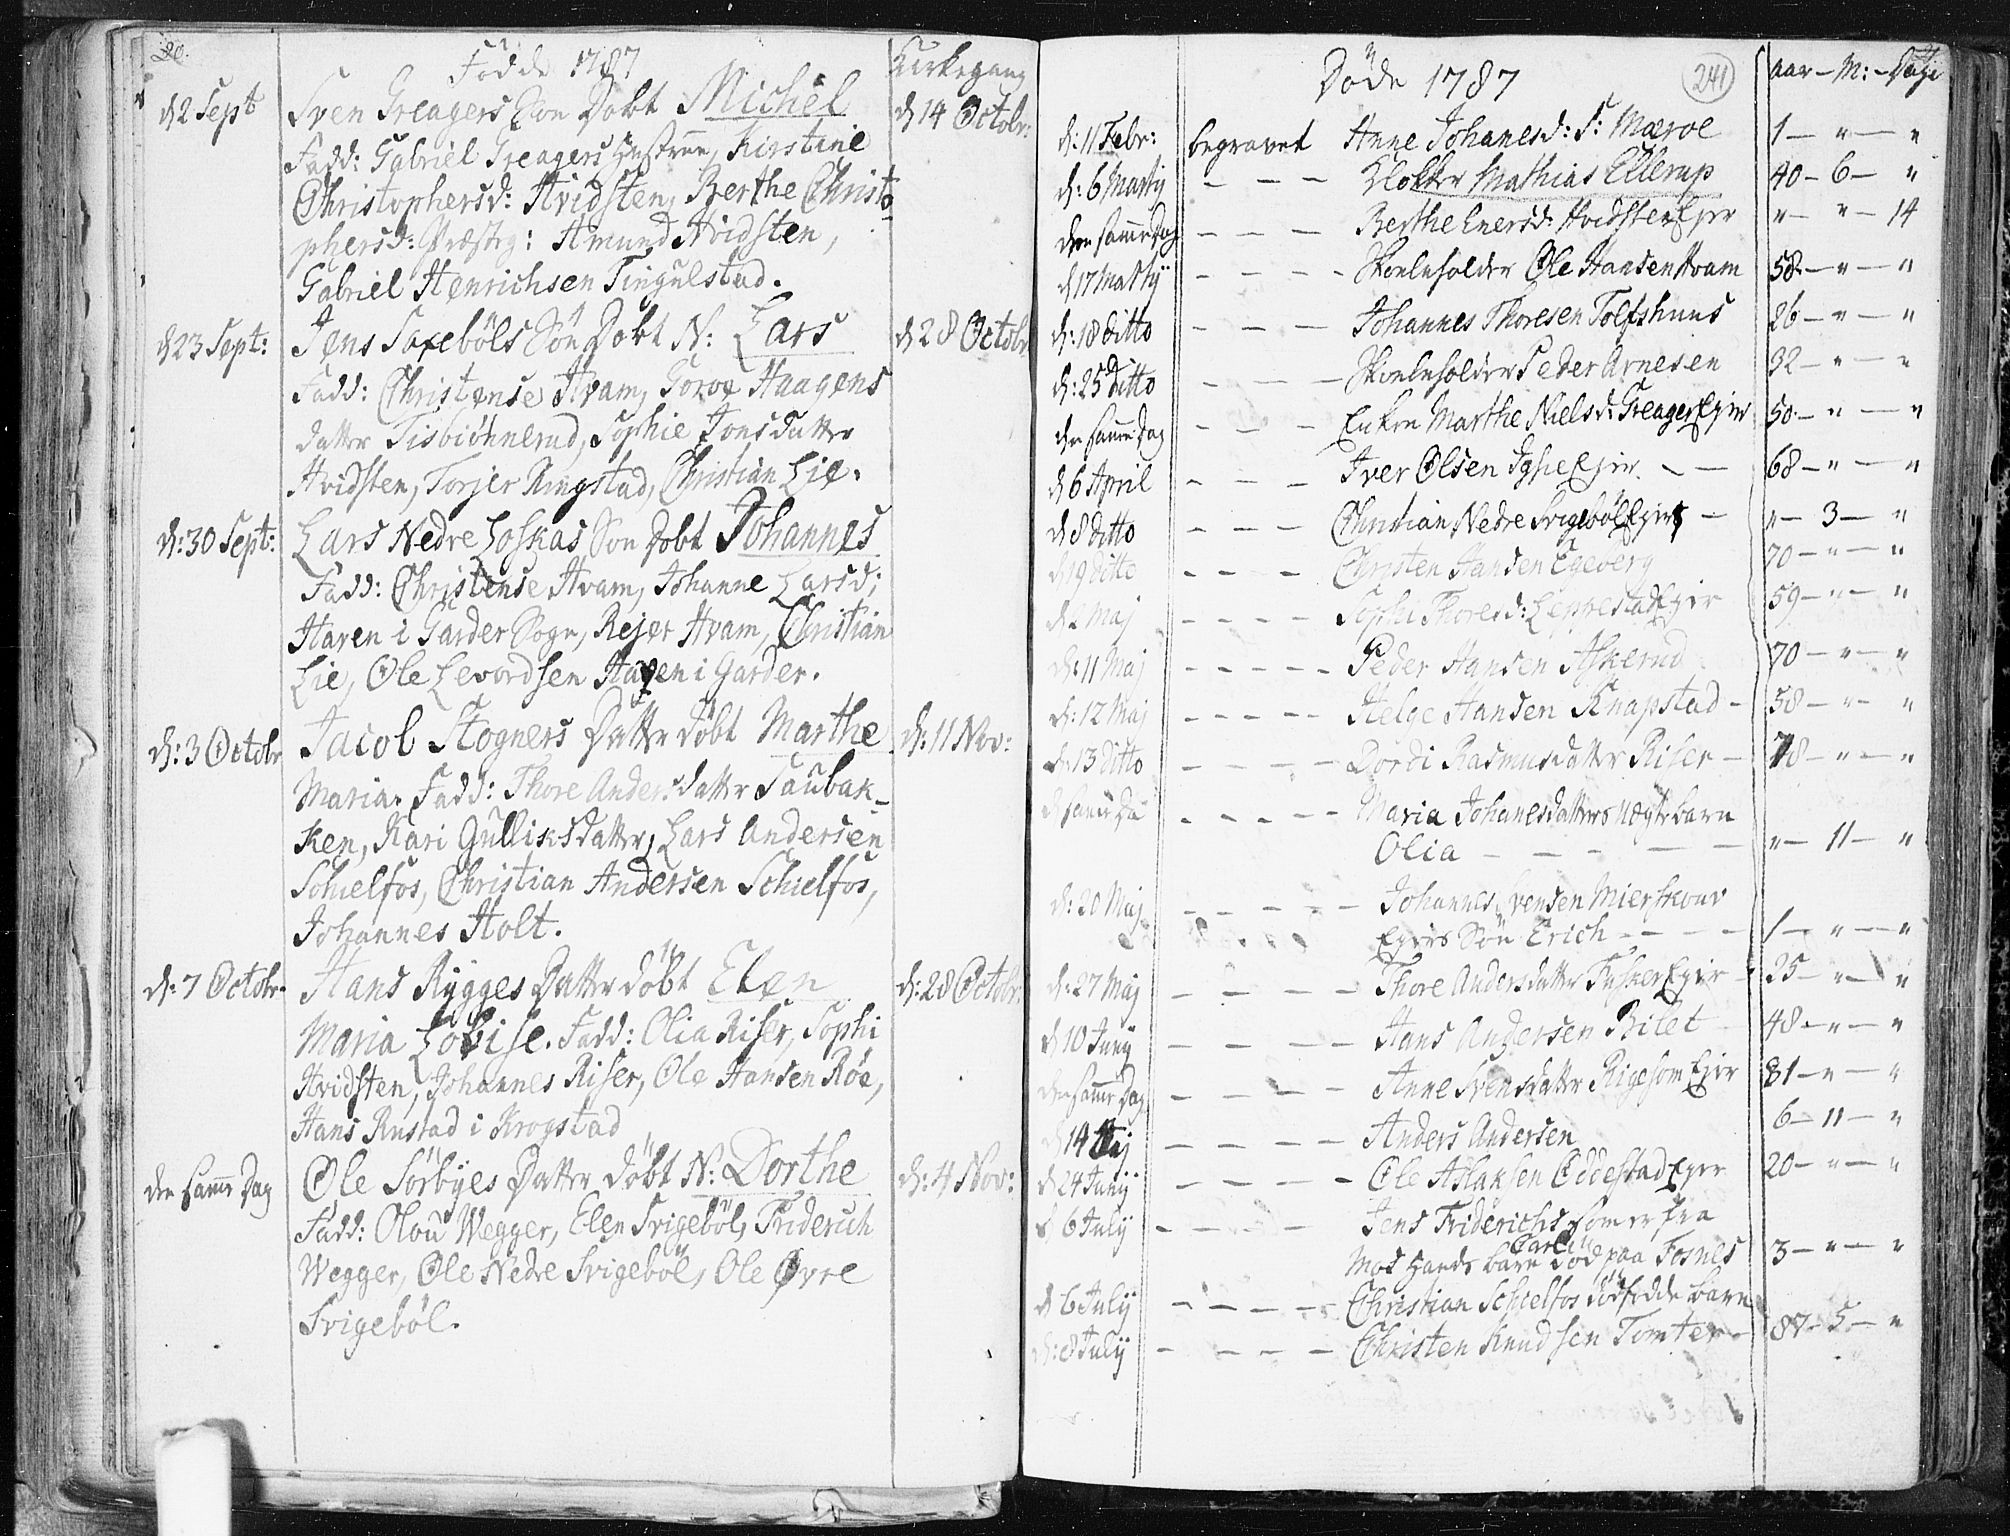 20.
Födde 1787
Kirkegang
d 2 Sept
Sven Greagers Son Dobt Michel
d 14 Octobr:
Fadd: Gabriel Greagers Hustrue, Kirstine
Christophersd: Hvidsten, Berthe Christo
phersd: Præsteg: Amund Hvidsten,
Gabriel Henrichsen Tingulstad.
d 23 Sept:
Jens Saxeböls Sön Dobt N: Lars
d 28 Octobr
Fadd: Christense Hvam, Goroe Haagens
datter Tisbiöhnerud, Sophie Jonsdatter
Hvidsten, Torjer Ringstad, Christian Lie.
d: 30 Sept:
Lars Nedre Loskas Son Dobt Johannes
Fadd: Christense Hvam, Johanne Larsd:
Haren i Garder Sogn, Rejer Hvam, Christian
Lie, Ole Levordsen Haren i Garder.
d: 3 Octobr
Jacob Stogners Datter döbt Marthe
d: 11 Nov:
Maria. Fadd: Thore Andersdatter Taubak-
ken, Kari Gulliksdatter, Lars Andersen
Schielfos, Christian Andersen Schielfos,
Johannes Holt.
d: 7 Octobr.
Hans Rygges Datter döbt Elen
d: 28 Octobr:
Maria Lovise. Fadd: Olia Riser, Sophi
Hvidsten, Johannes Riser, Ole Hansen Röe,
Hans Rustad i Krogstad
den samme Dag
Ole Sörbyes Datter döbt N: Dorthe
d: 4 Nov:
Fadd: Olou Wegger, Elen Svigeböl, Friderich
Wegger, Ole Nedre Svigeböl, Ole Øvre
Svigeböl.
Döde 1787
241
aar - M: - Dage
d: 11 Febr: begravet Anne Johanesd: S: Mæroe 1 - " - "
d: 6 Martij - - - Klokker Mathias Ellerup 40 - 6 - "
den samme Dag - - - Berthe Enersd: Hvidsten Ejer " - " - 14
d 17 Martij - - - - Skoeleholder Ole Hansen Hvam 58 - " - "
d: 18 ditto - - - Johannes Thoresen Tolfshuus 26 - " - "
d: 25 ditto - - - - Skoeleholder Peder Arnesen 32 - " - "
den samme Dag - - - Enken Marthe Nielsd: Greager Ejer 50 - " - "
d 6 April - - - Iver Olsen Ejer - - 68 - " - "
d 8 ditto - - - Christian Nedre Svigeböl Ejer - " - 3 - "
d 19 ditto - - - - Christen Hansen Egeberg 70 - " - "
d 2 Maj - - - - Sophi Thoresd: Leprestad Ejer 59 - " - "
d: 11 Maj - - - - - Peder Hansen Askerud 70 - " - "
d: 12 Maj - - - - - Helge Hansen Knapstad - 58 - " - "
d: 13 ditto - - - - Dordi Rasmusdatter Riser - 78 - " - "
d samme Da - - - - - Maria Johanesdatters uægte barn
Olia - - - - - " - 11 - "
d: 20 Maj - - - - - Johannes Svensen Mierskouv
Ejers Sön Erich - - - - 1 - " - "
d: 27 Maj - - - - Thore Andersdatter Fusker Ejer 25 - " - "
d 10 Junij - - - - Hans Andersen Bilet 48 - " - "
den samme Dag - - - - Anne Svensdatter Rigesom Ejer 81 - " - "
d 14 - - - - Anders Andersen 6 - 11 - "
d 24 Junij - - - - Ole Aslaksen Oddestad Ejer 20 - " - "
d 6 July - - - - Jens Friderichs som er fra
Carl
Mos Hands barn död paa Fosnes 3 - " - "
d 6 July - - - - Christian Schielfos dödfödde barn
d: 8 July - - - - Christen Knudsen Tomter - 87 - 5 - "